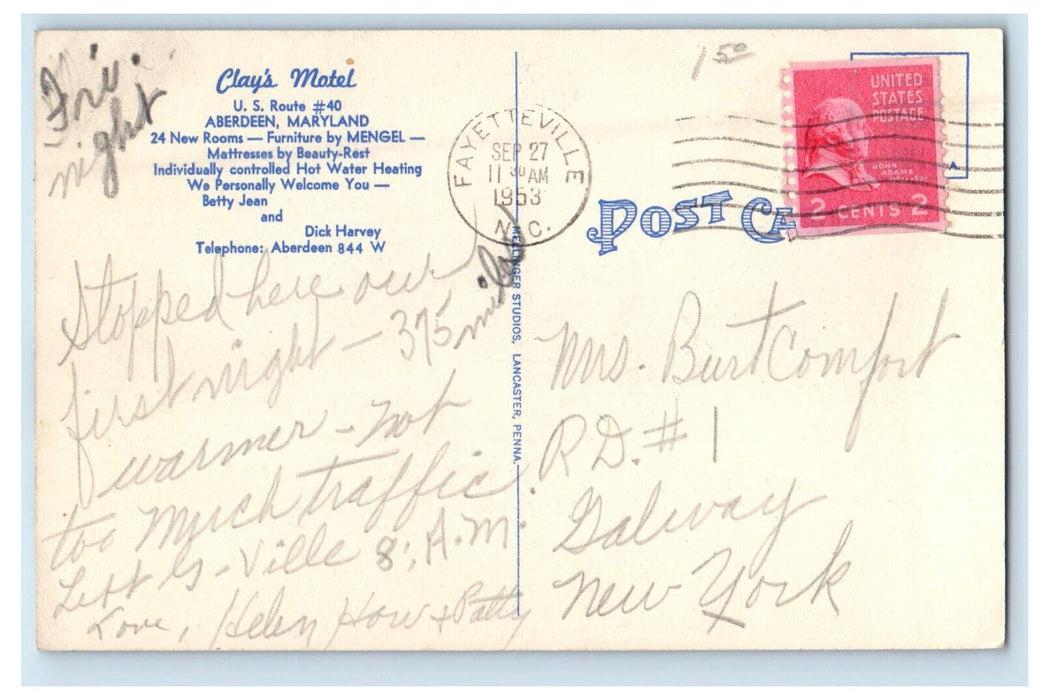 Fri.
night
Clay's Motel
U. S. Route #40
ABERDEEN, MARYLAND
24 New Rooms — Furniture by MENGEL —
Mattresses by Beauty-Rest
Individually controlled Hot Water Heating
We Personally Welcome You —
Betty Jean
and
Dick Harvey
Telephone: Aberdeen 844 W
Stopped here our
first night - 375 miles
warmer - not
too much traffic.
Left Gs-Ville 8: A.M.
Love, Helen How + Patty
MESSENGER STUDIOS, LANCASTER, PENNA.
FAYETTEVILLE
SEP 27
11 30 AM
1953
N.C.
1 50
UNITED
STATES
POSTAGE
JOHN
ADAMS
2 CENTS 2
POST CA
Mrs. Burt Comfort
R.D. #1
Galway
New York